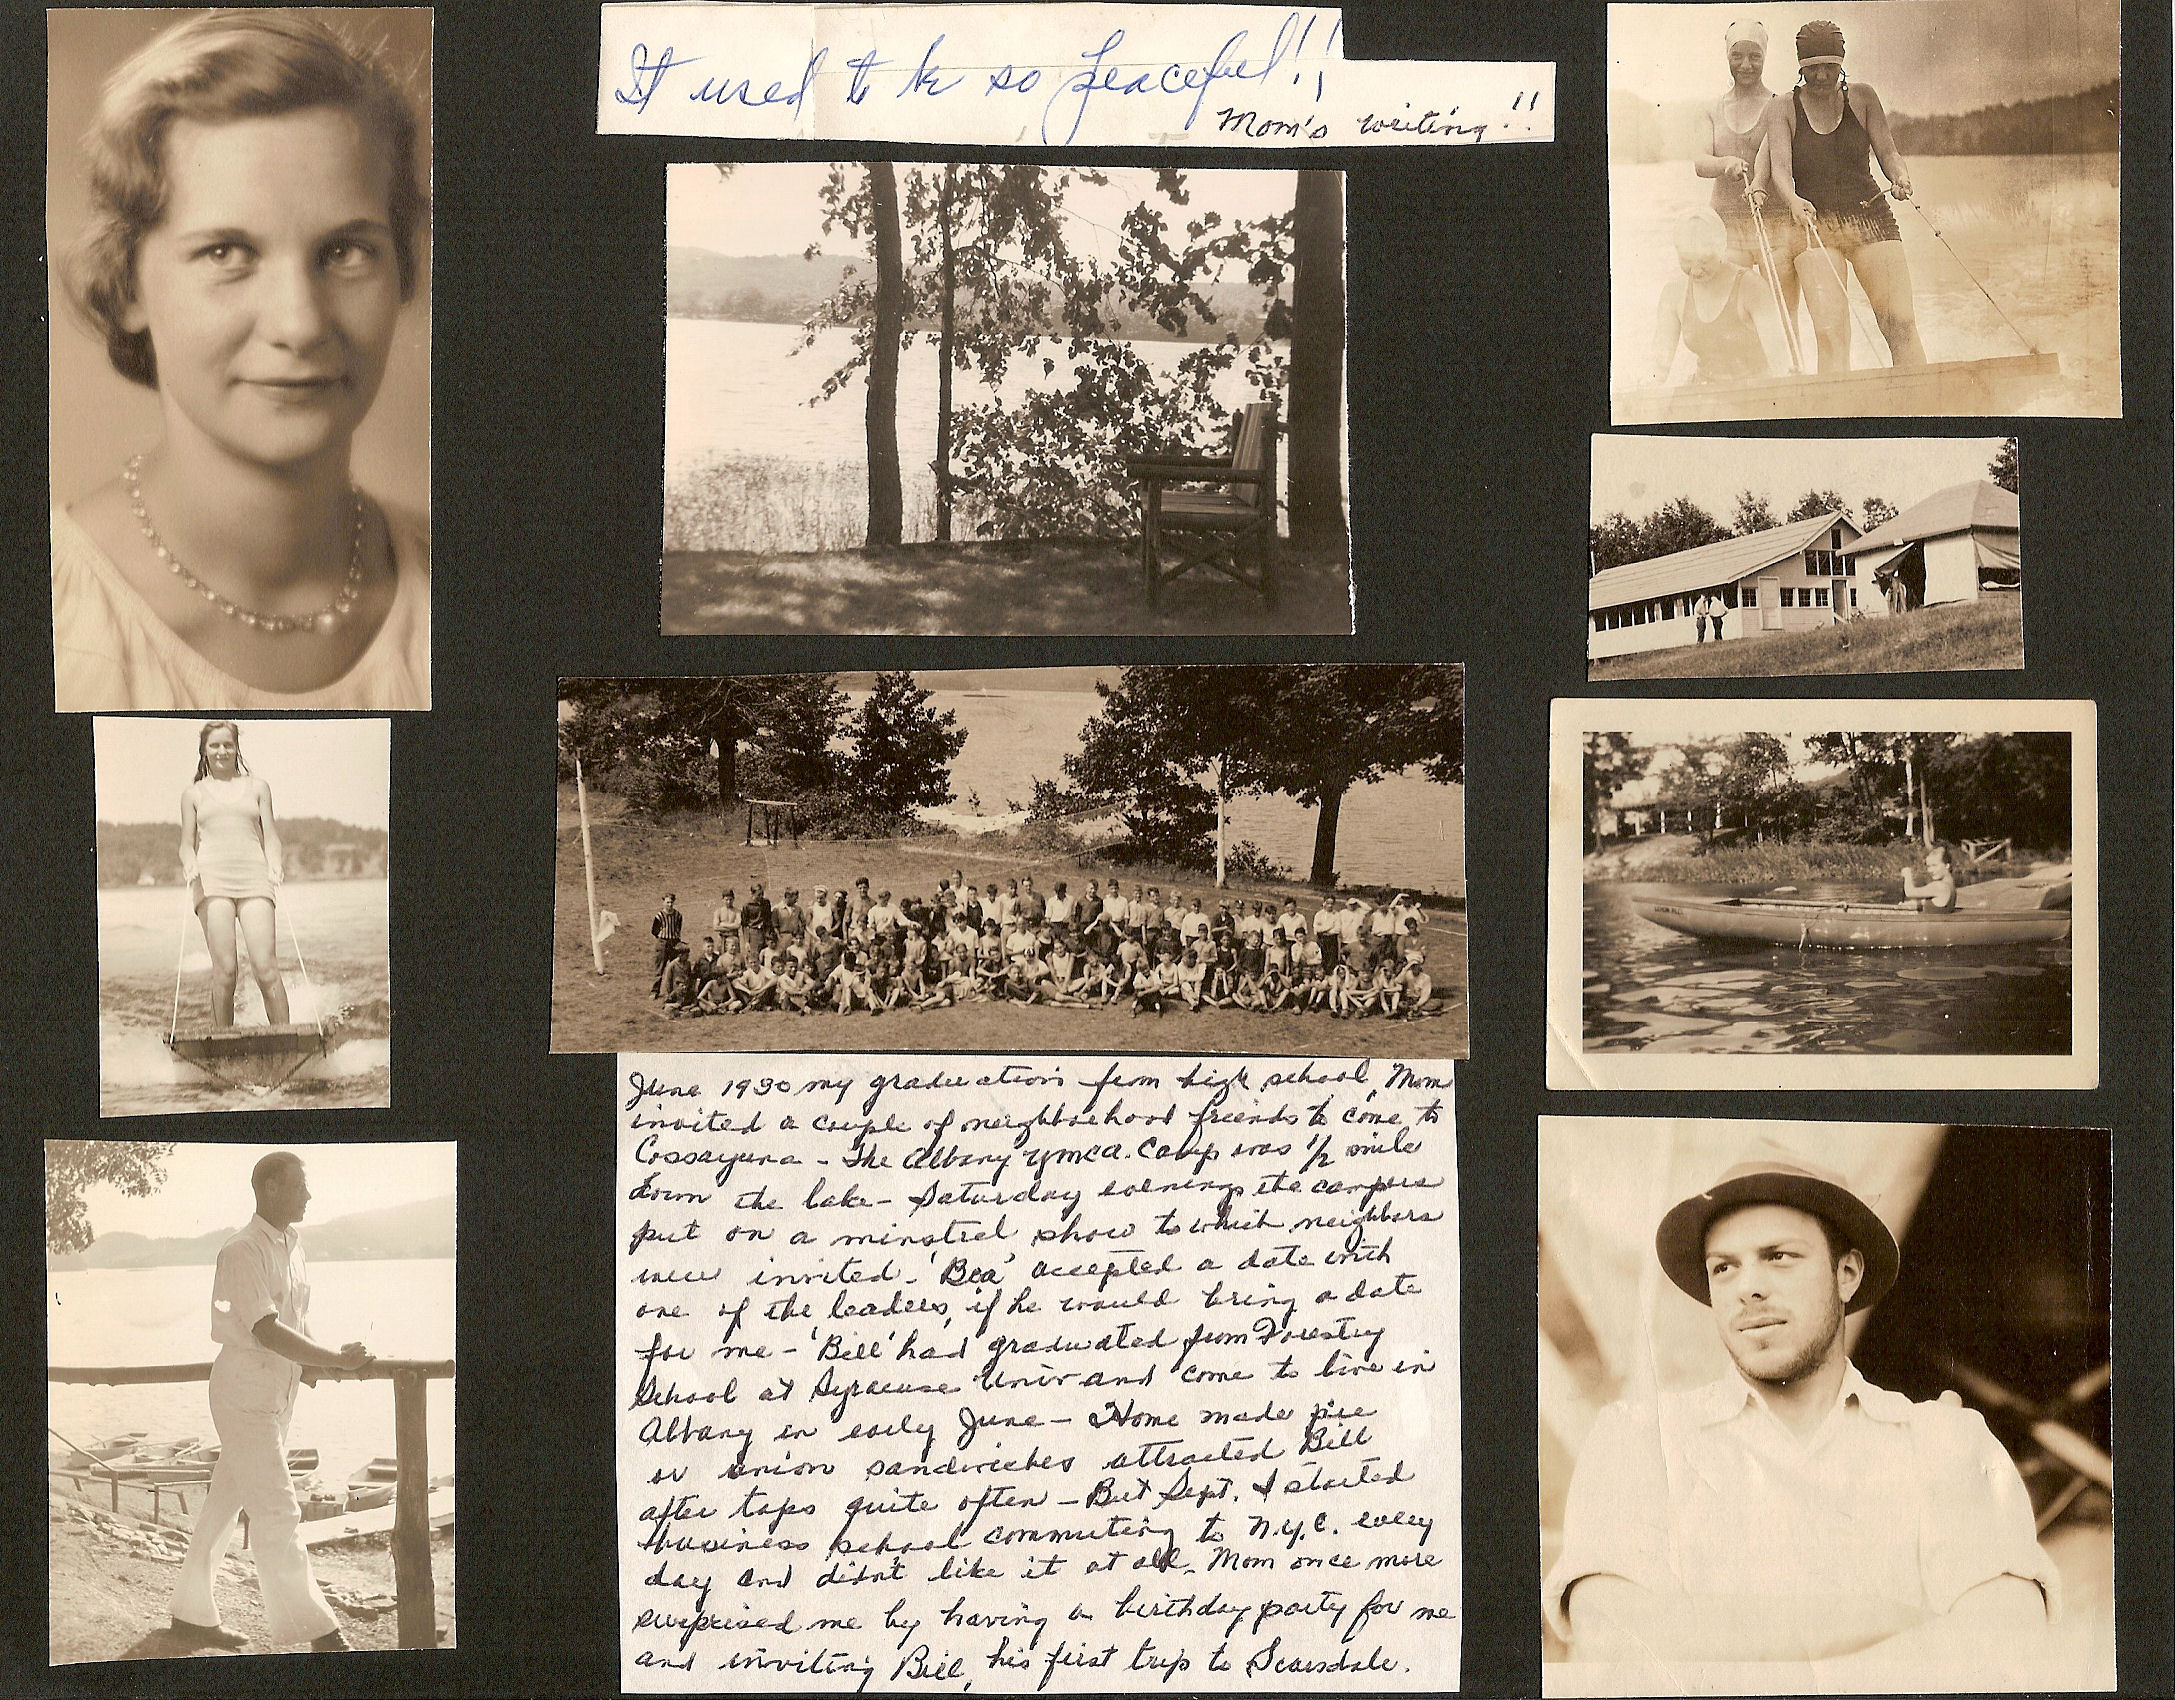 It used to be so peaceful!!
Mom's writing!!
June 1930 my graduation from high school, Mom
invited a couple of neighborhood friends to come to
Cossayuna - The Albany YMCA. Camp was 1/2 mile
down the lake - Saturday evenings the campers
put on a minstrel show to which neighbors
were invited - 'Bea' accepted a date with
one of the leaders, if he would bring a date
for me - 'Bill' had graduated from Forestry
School at Syracuse Univ and come to live in
Albany in early June - Home made pie
or onion sandwiches attracted Bill
after taps quite often - But Sept. I started
business school commuting to N.Y.C. every
day and didn't like it at all. Mom once more
surprised me by having a birthday party for me
and inviting Bill, his first trip to Scarsdale.